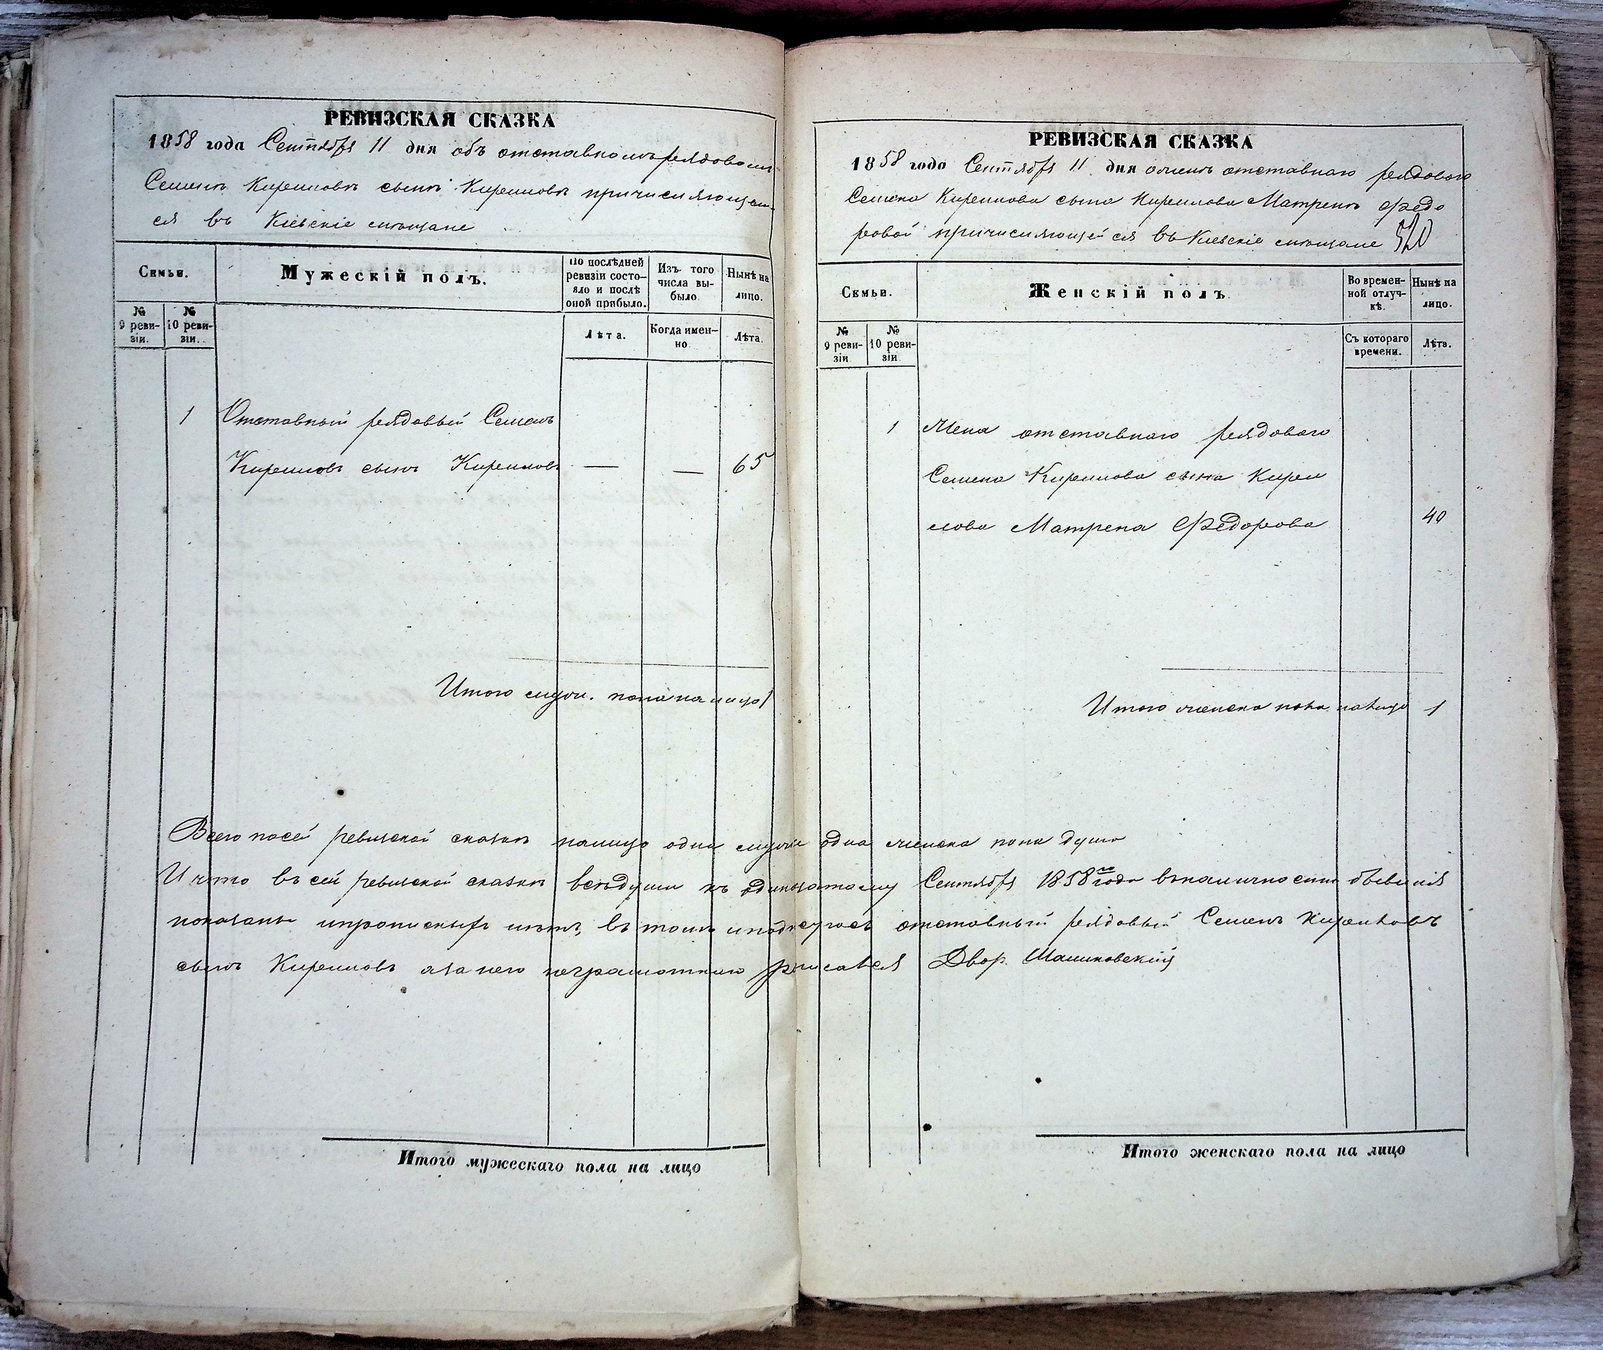 РЕВИЗСКАЯ СКАЗКА
1858 года Сентября 11 дня объ отставномъ рядовомъ
Семенѣ Кириловѣ сынѣ Кириловѣ причисляющем
ся въ Кіевскіе мѣщане
Семьи.
Мужескій полъ.
По послѣдней ревизіи состо-
яло и послѣ
оной прибыло.
Изъ того
числа вы-
было.
Нынѣ на
лицо.
№
9 реви-
зіи.
№
10 реви-
зіи.
Лѣта.
Когда имен-
но
Лѣта.
1 Отставный рядовый Семенъ
Кириловъ сынъ Кириловъ — — 65
Итого мужи. пола на лицо 1
РЕВИЗСКАЯ СКАЗКА
1858 года Сентября 11 дня о женѣ отставнаго рядоваго
Семена Кирилова сына Кирилова Матренѣ Ѳедо
ровой причисляющейся въ Кіевскіе мѣщане 520
Семьи.
Женскій полъ
Во времен-
ной отлуч-
кѣ.
Нынѣ на
лицо.
№
9 реви-
зіи
№
10 реви-
зіи
Съ котораго
времени.
Лѣта.
1 Жена отставнаго рядоваго
Семена Кирилова сына Кири
лова Матрена Ѳедорова 40
Итого женска пола налицо 1
Всего посей ревизской сказкѣ налицо одна мужска одна женска пола душа
И что въ сей ревизской сказкѣ всѣ души къ одинадцатому Сентября 1858го года въ наличности бывшія
показаны и прописныхъ нѣтъ, въ томъ и подписуюсь отставный рядовый Семенъ Кириловъ
сынъ Кириловъ а за него неграмотнаго росписался Двор. Малиновскій
Итого мужескаго пола на лицо
Итого женскаго пола на лицо